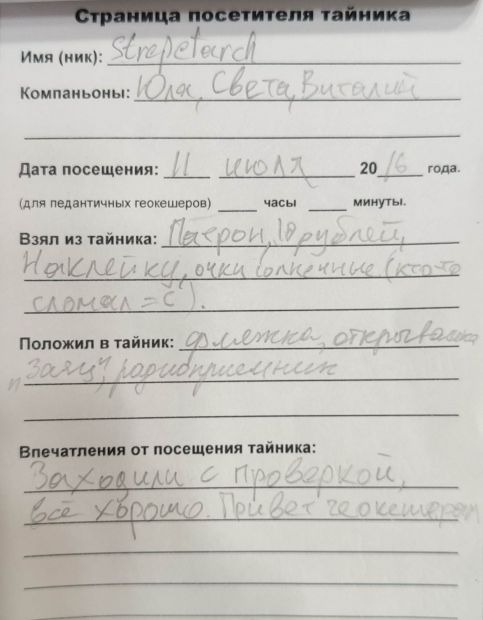 Страница посетителя тайника
Имя (ник): Strepetarch
Компаньоны: Юля, Света, Виталий
Дата посещения: 11 июля 2016 года.
(для педантичных геокешеров) ____ часы ____ минуты.
Взял из тайника: Патрон, 10 рублей,
Наклейку, очки солнечные (кто-то
сломал =C).
Положил в тайник: фляжка, открывашка
"Заяц", радиоприемник
Впечатления от посещения тайника:
Заходили с проверкой,
всё хорошо. Привет геокешерам